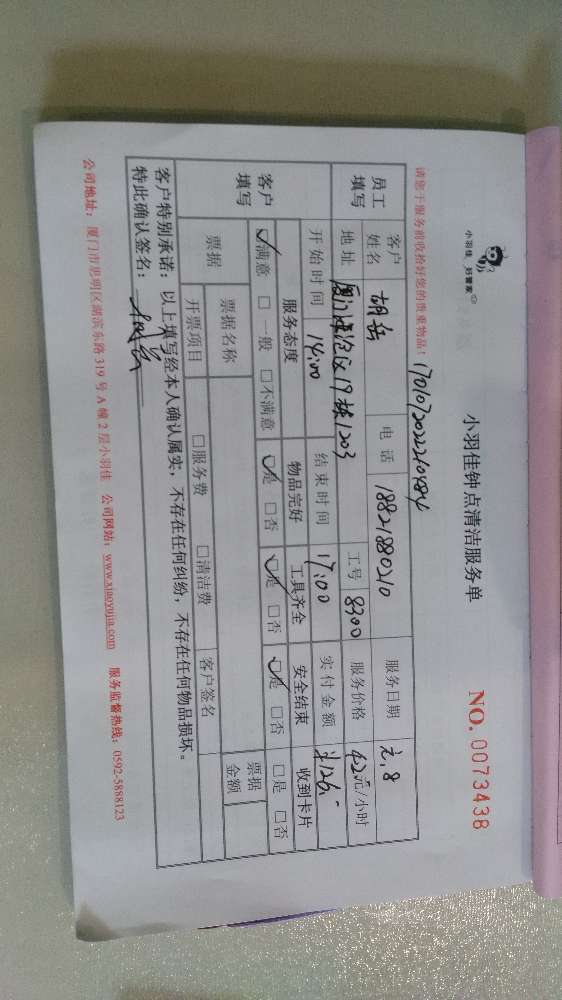 小羽佳 好管家
小羽佳钟点清洁服务单
NO. 0073438
请您于服务前收拾好您的贵重物品！
员工填写 客户姓名 电话 18821880210 服务日期 8
地址 19栋1203 工号 8300 服务价格 42元/小时
开始时间 14:00 结束时间 17:00 实付金额 ¥126.-
客户填写 服务态度 物品完好 工具齐全 安全结束 收到卡片
☑满意 □一般 □不满意 ☑是 □否 ☑是 □否 ☑是 □否 □是 □否
票据 票据名称 票据金额
开票项目 □服务费 □清洁费 客户签名
客户特别承诺：以上填写经本人确认属实，不存在任何纠纷，不存在任何物品损坏。
特此确认签名：
公司地址：厦门市思明区湖滨东路 319 号 A 幢 2 层小羽佳 公司网站：www.xiaoyujia.com 服务监督热线：0592-5888123